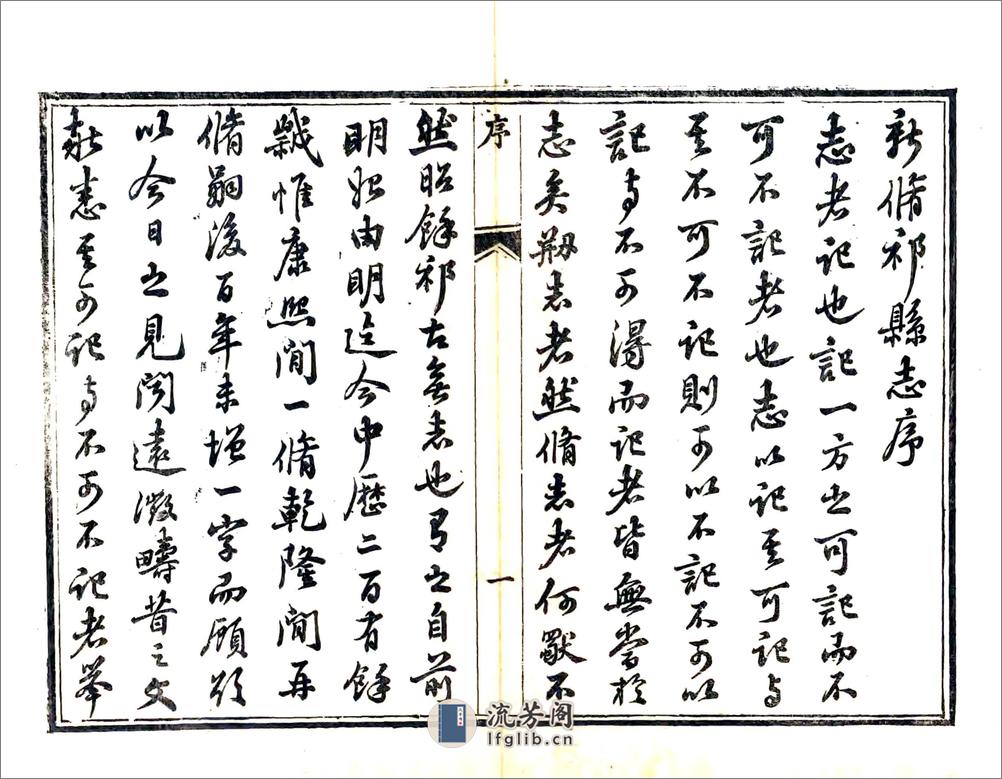 新脩祁縣志序
志者記也記一方之可記而不
可不記者也志以記其可記与
其不可不記則可以不記不可以
記与不可得而記者皆無當於
志矣剏志者然脩志者何獨不
序
一
然昭餘祁古無志也有之自前
明始由明迄今中歷二百有餘
歲惟康熙間一脩乾隆間再
脩嗣後百年未增一字而顧欲
以今日之見聞遠徵疇昔之文
獻志其可記与不可不記者举
流芳阁
lfglib.cn